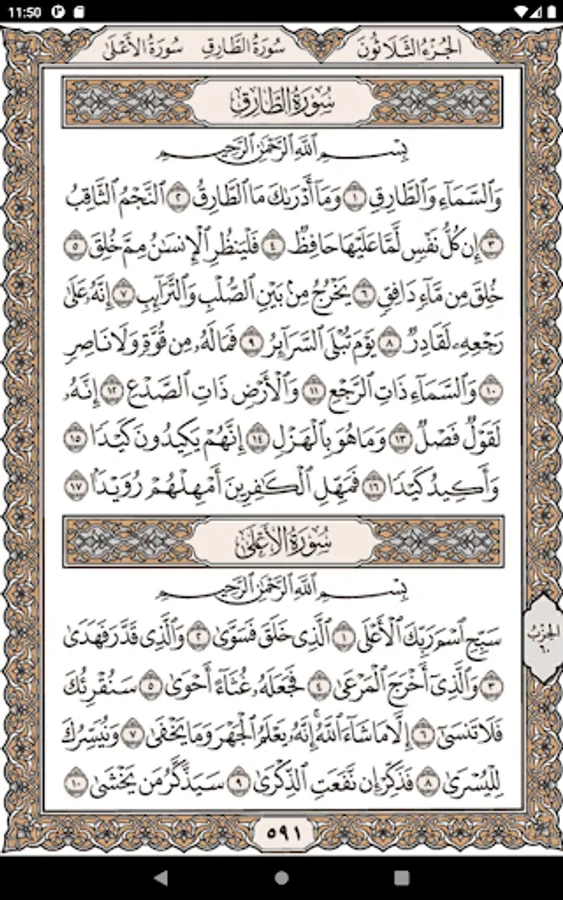 11:50
الجزء الثلاثون سورة الطارق سورة الأعلى
سورة الطارق
بسم الله الرحمن الرحيم
وَالسَّمَآءِ وَالطَّارِقِ ١ وَمَآ أَدْرَىٰكَ مَا الطَّارِقُ ٢ النَّجْمُ الثَّاقِبُ
٣ إِن كُلُّ نَفْسٍ لَّمَّا عَلَيْهَا حَافِظٌ ٤ فَلْيَنظُرِ الْإِنسَٰنُ مِمَّ خُلِقَ ٥
خُلِقَ مِن مَّآءٍ دَافِقٍ ٦ يَخْرُجُ مِنۢ بَيْنِ الصُّلْبِ وَالتَّرَآئِبِ ٧ إِنَّهُۥ عَلَىٰ
رَجْعِهِۦ لَقَادِرٌ ٨ يَوْمَ تُبْلَى السَّرَآئِرُ ٩ فَمَا لَهُۥ مِن قُوَّةٍ وَلَا نَاصِرٍ
١٠ وَالسَّمَآءِ ذَاتِ الرَّجْعِ ١١ وَالْأَرْضِ ذَاتِ الصَّدْعِ ١٢ إِنَّهُۥ
لَقَوْلٌ فَصْلٌ ١٣ وَمَا هُوَ بِالْهَزْلِ ١٤ إِنَّهُمْ يَكِيدُونَ كَيْدًا ١٥
وَأَكِيدُ كَيْدًا ١٦ فَمَهِّلِ الْكَٰفِرِينَ أَمْهِلْهُمْ رُوَيْدًۢا ١٧
سورة الأعلى
بسم الله الرحمن الرحيم
سَبِّحِ اسْمَ رَبِّكَ الْأَعْلَى ١ الَّذِى خَلَقَ فَسَوَّىٰ ٢ وَالَّذِى قَدَّرَ فَهَدَىٰ
٣ وَالَّذِىٓ أَخْرَجَ الْمَرْعَىٰ ٤ فَجَعَلَهُۥ غُثَآءً أَحْوَىٰ ٥ سَنُقْرِئُكَ
فَلَا تَنسَىٰٓ ٦ إِلَّا مَا شَآءَ اللَّهُ ۚ إِنَّهُۥ يَعْلَمُ الْجَهْرَ وَمَا يَخْفَىٰ ٧ وَنُيَسِّرُكَ
لِلْيُسْرَىٰ ٨ فَذَكِّرْ إِن نَّفَعَتِ الذِّكْرَىٰ ٩ سَيَذَّكَّرُ مَن يَخْشَىٰ ١٠
الحزب
٦٠
٥٩١